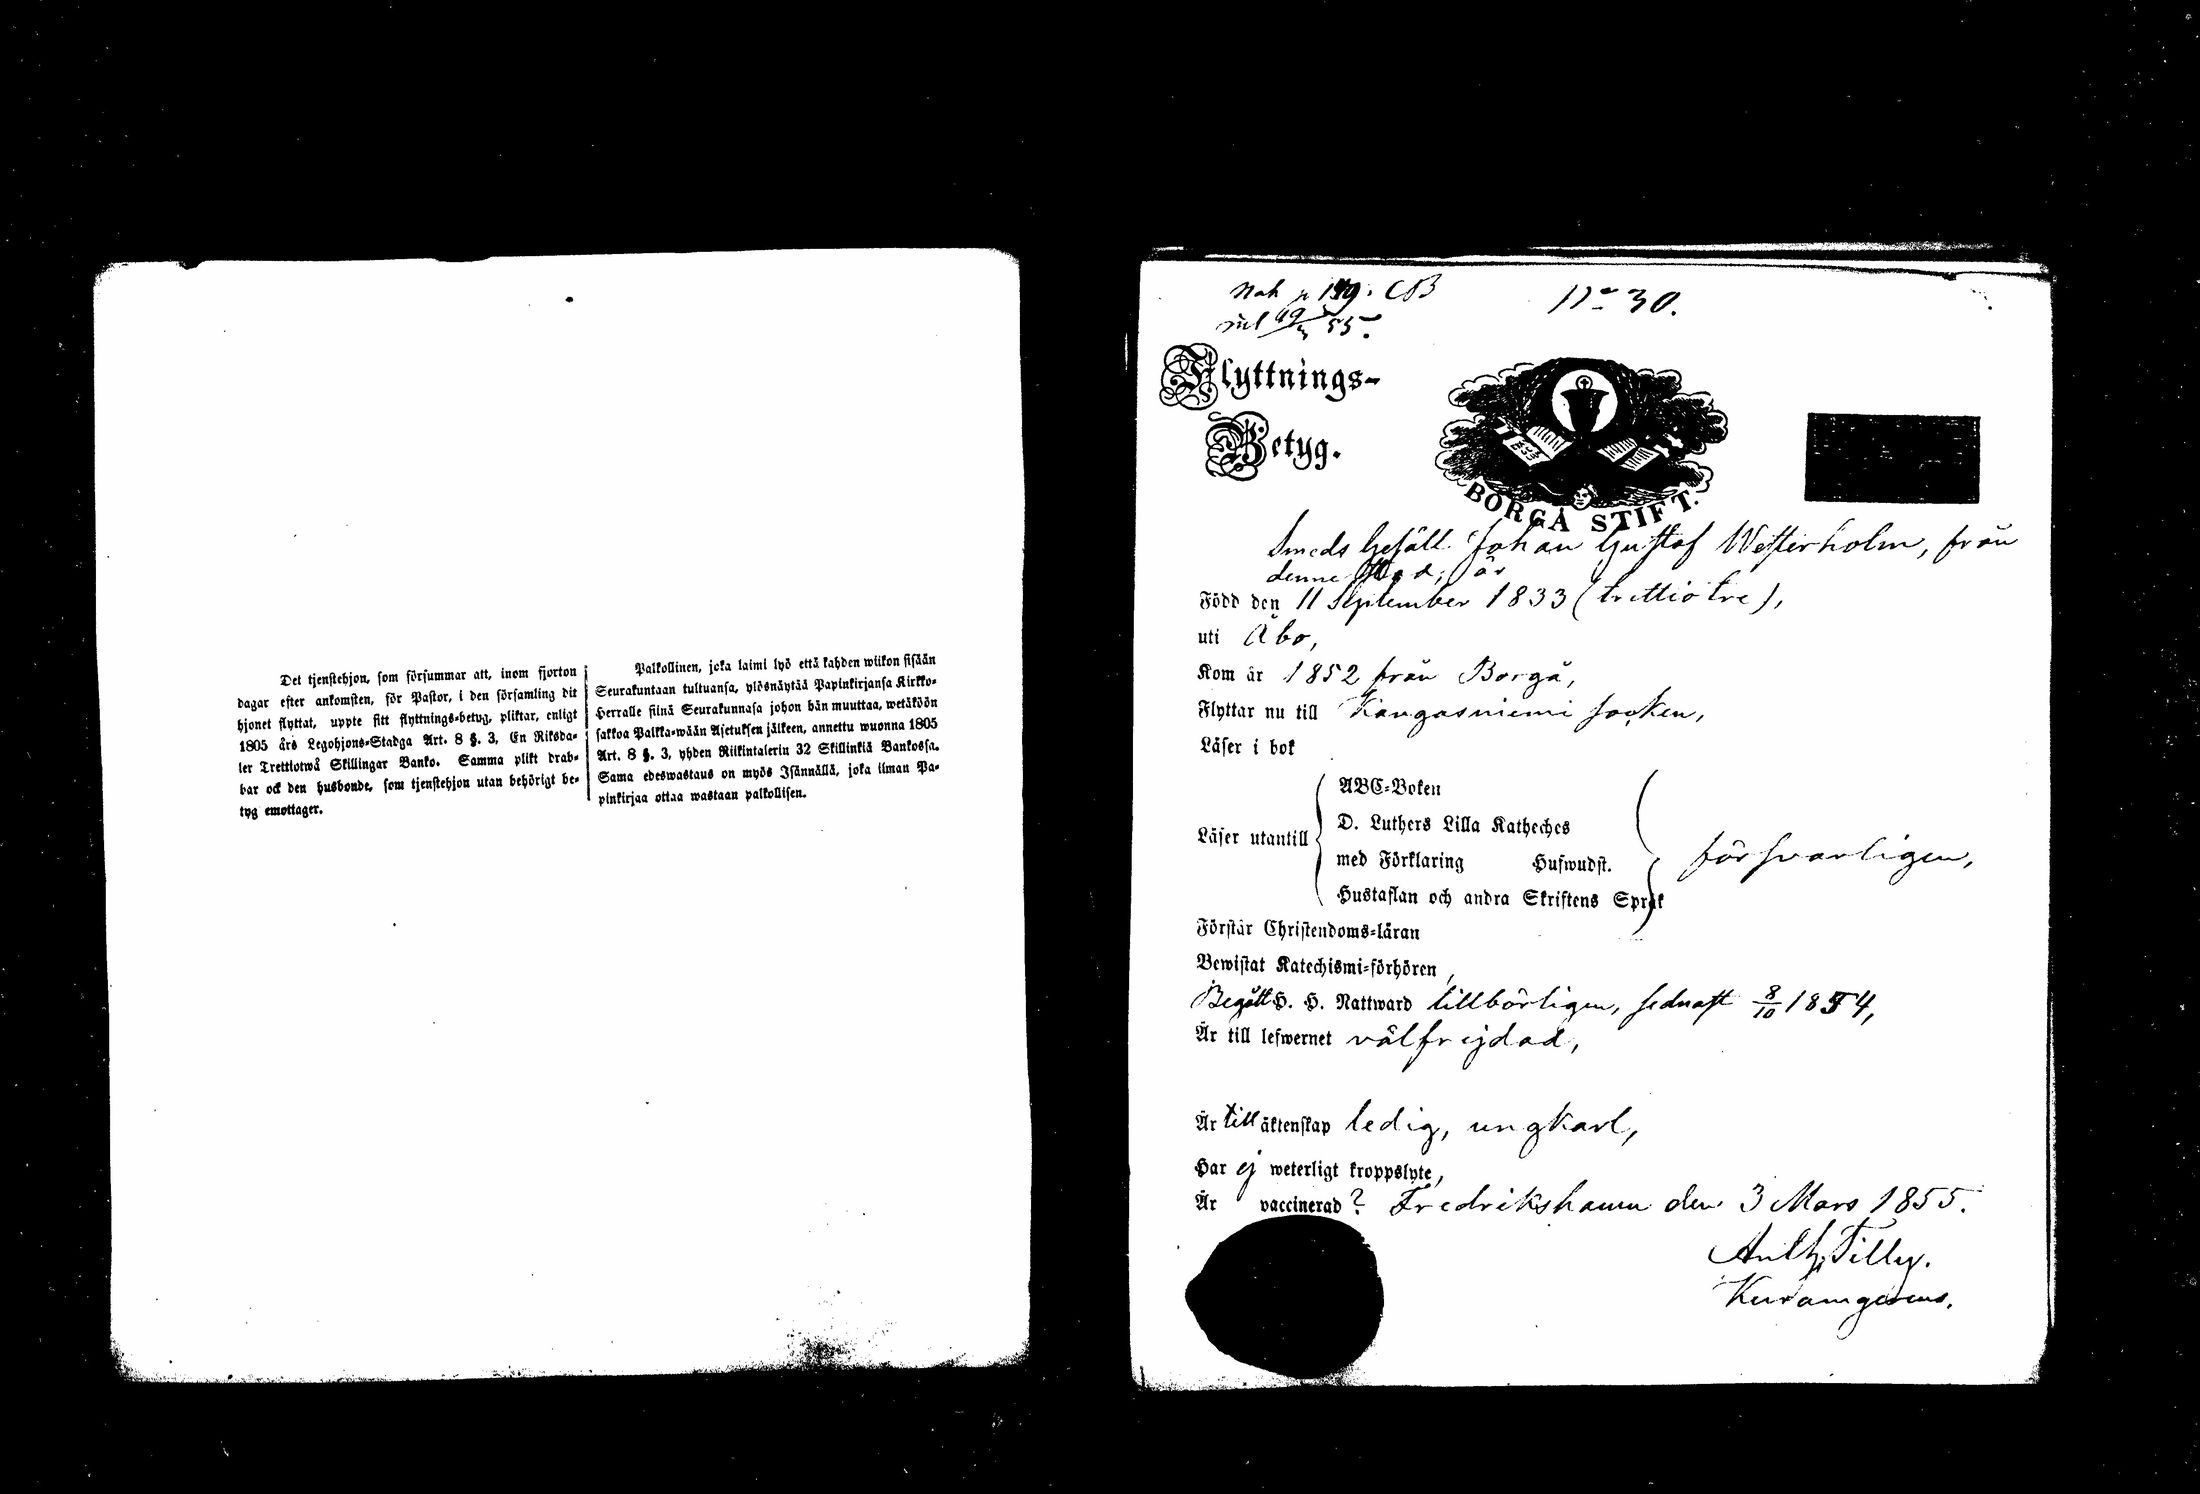 Det tjenstehjon, som försummar att, inom fjorton
dagar efter ankomsten, för Pastor, i den församling dit
hjonet flyttat, uppte sitt flyttnings-betyg, pliktar, enligt
1805 års Legohjons-Stadga Art. 8 §. 3, En Riksda-
ler Trettiotwå Skillingar Banko. Samma plikt drab-
bar ock den husbonde, som tjenstehjon utan behörigt be-
tyg emottager.
Palkollinen, joka laimi lyö että kahden wiikon sisään
Seurakuntaan tultuansa, ylösnäytää Papinkirjansa Kirkko-
Herralle siinä Seurakunnasa johon hän muuttaa, wetäköön
sakkoa Palkka-wään Asetuksen jälkeen, annettu wuonna 1805
Art. 8 §. 3, yhden Riikintalerin 32 Skillinkiä Bankossa.
Sama edeswastaus on myös Isännällä, joka ilman Pa-
pinkirjaa ottaa wastaan palkollisen.
N:o 30.
Flyttnings-
Betyg.
BORGÅ STIFT.
Smeds Gesäll Johan Gustaf Westerholm, från
denne Stad; är
Född den 11 September 1833 (trettiotre),
uti Åbo,
Kom år 1852 från Borgå,
Flyttar nu till Kangasniemi socken,
Läser i bok
Läser utantill
ABC-Boken
D. Luthers Lilla Katheches
med Förklaring Hufwudst.
Hustaflan och andra Skriftens Språk
försvarligen,
Förstår Christendoms-läran
Bewistat Katechismi-förhören,
Begått H. H. Nattward tillbörligen, sednast 8/10 1854,
Är till lefwernet välfrejdad,
Är till äktenskap ledig, ungkarl,
Har ej weterligt kroppslyte,
Är vaccinerad? Fredrikshamn den 3 Mars 1855.
Anth. Tilly.